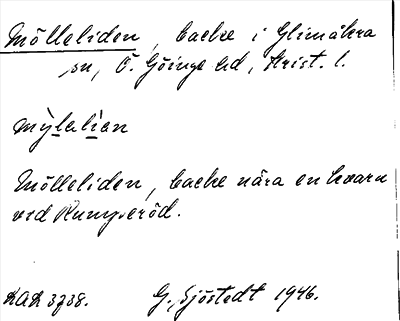 Mölleliden, backe i Glimåkra
sn, Ö. Göinge hd, Krist. l.
mỳlalìan
Mölleliden, backe nära en kvarn
vid
KAK 3738.
G. Sjöstedt 1946.